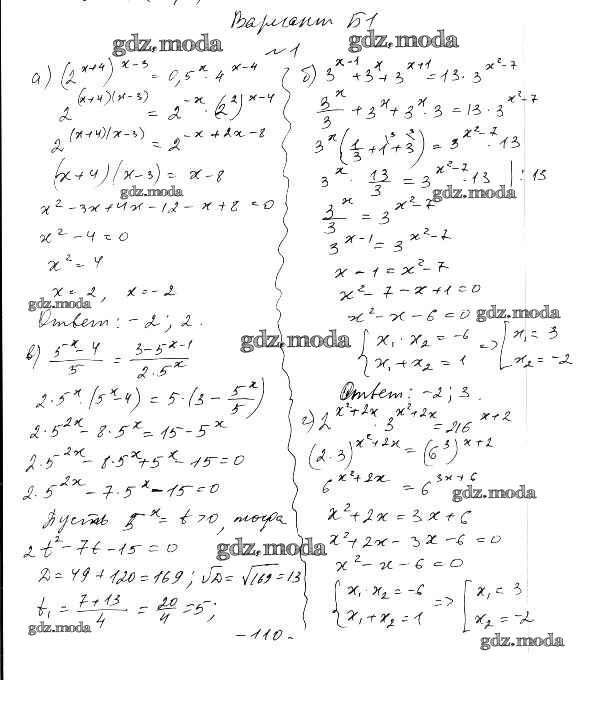 Вариант Б1
gdz.moda gdz.moda
№1
а) (2^(x+4))^(x-3) = 0,5^x · 4^(x-4)
2^((x+4)(x-3)) = 2^(-x) · (2^2)^(x-4)
2^((x+4)(x-3)) = 2^(-x+2x-8)
(x+4)(x-3) = x-8
gdz.moda
x^2-3x+4x-12-x+8=0
x^2-4=0
x^2=4
x=2, x=-2
gdz.moda
Ответ: -2; 2.
в) (5^x-4)/5 = (3-5^(x-1))/(2·5^x)
2·5^x·(5^x-4) = 5·(3-5^x/5)
2·5^(2x)-8·5^x=15-5^x
2·5^(2x)-8·5^x+5^x-15=0
2·5^(2x)-7·5^x-15=0
Пусть 5^x=t>0, тогда
2t^2-7t-15=0
gdz.moda
D=49+120=169; √D=√169=13
t₁=(7+13)/4=20/4=5;
gdz.moda
б) 3^(x-1)+3^x+3^(x+1)=13·3^(x^2-7)
3^x/3+3^x+3^x·3=13·3^(x^2-7)
3^x(1/3+1+3)=3^(x^2-7)·13
3^x·13/3=3^(x^2-7)·13 |:13
gdz.moda
3^x/3=3^(x^2-7)
3^(x-1)=3^(x^2-7)
x-1=x^2-7
x^2-7-x+1=0
x^2-x-6=0
gdz.moda
{x₁·x₂=-6 => [x₁=3
{x₁+x₂=1 [x₂=-2
gdz.moda
Ответ: -2; 3.
г) 2^(x^2+2x)·3^(x^2+2x)=216^(x+2)
(2·3)^(x^2+2x)=(6^3)^(x+2)
6^(x^2+2x)=6^(3x+6)
gdz.moda
x^2+2x=3x+6
x^2+2x-3x-6=0
x^2-x-6=0
{x₁·x₂=-6 => [x₁=3
{x₁+x₂=1 [x₂=-2
gdz.moda
-110-